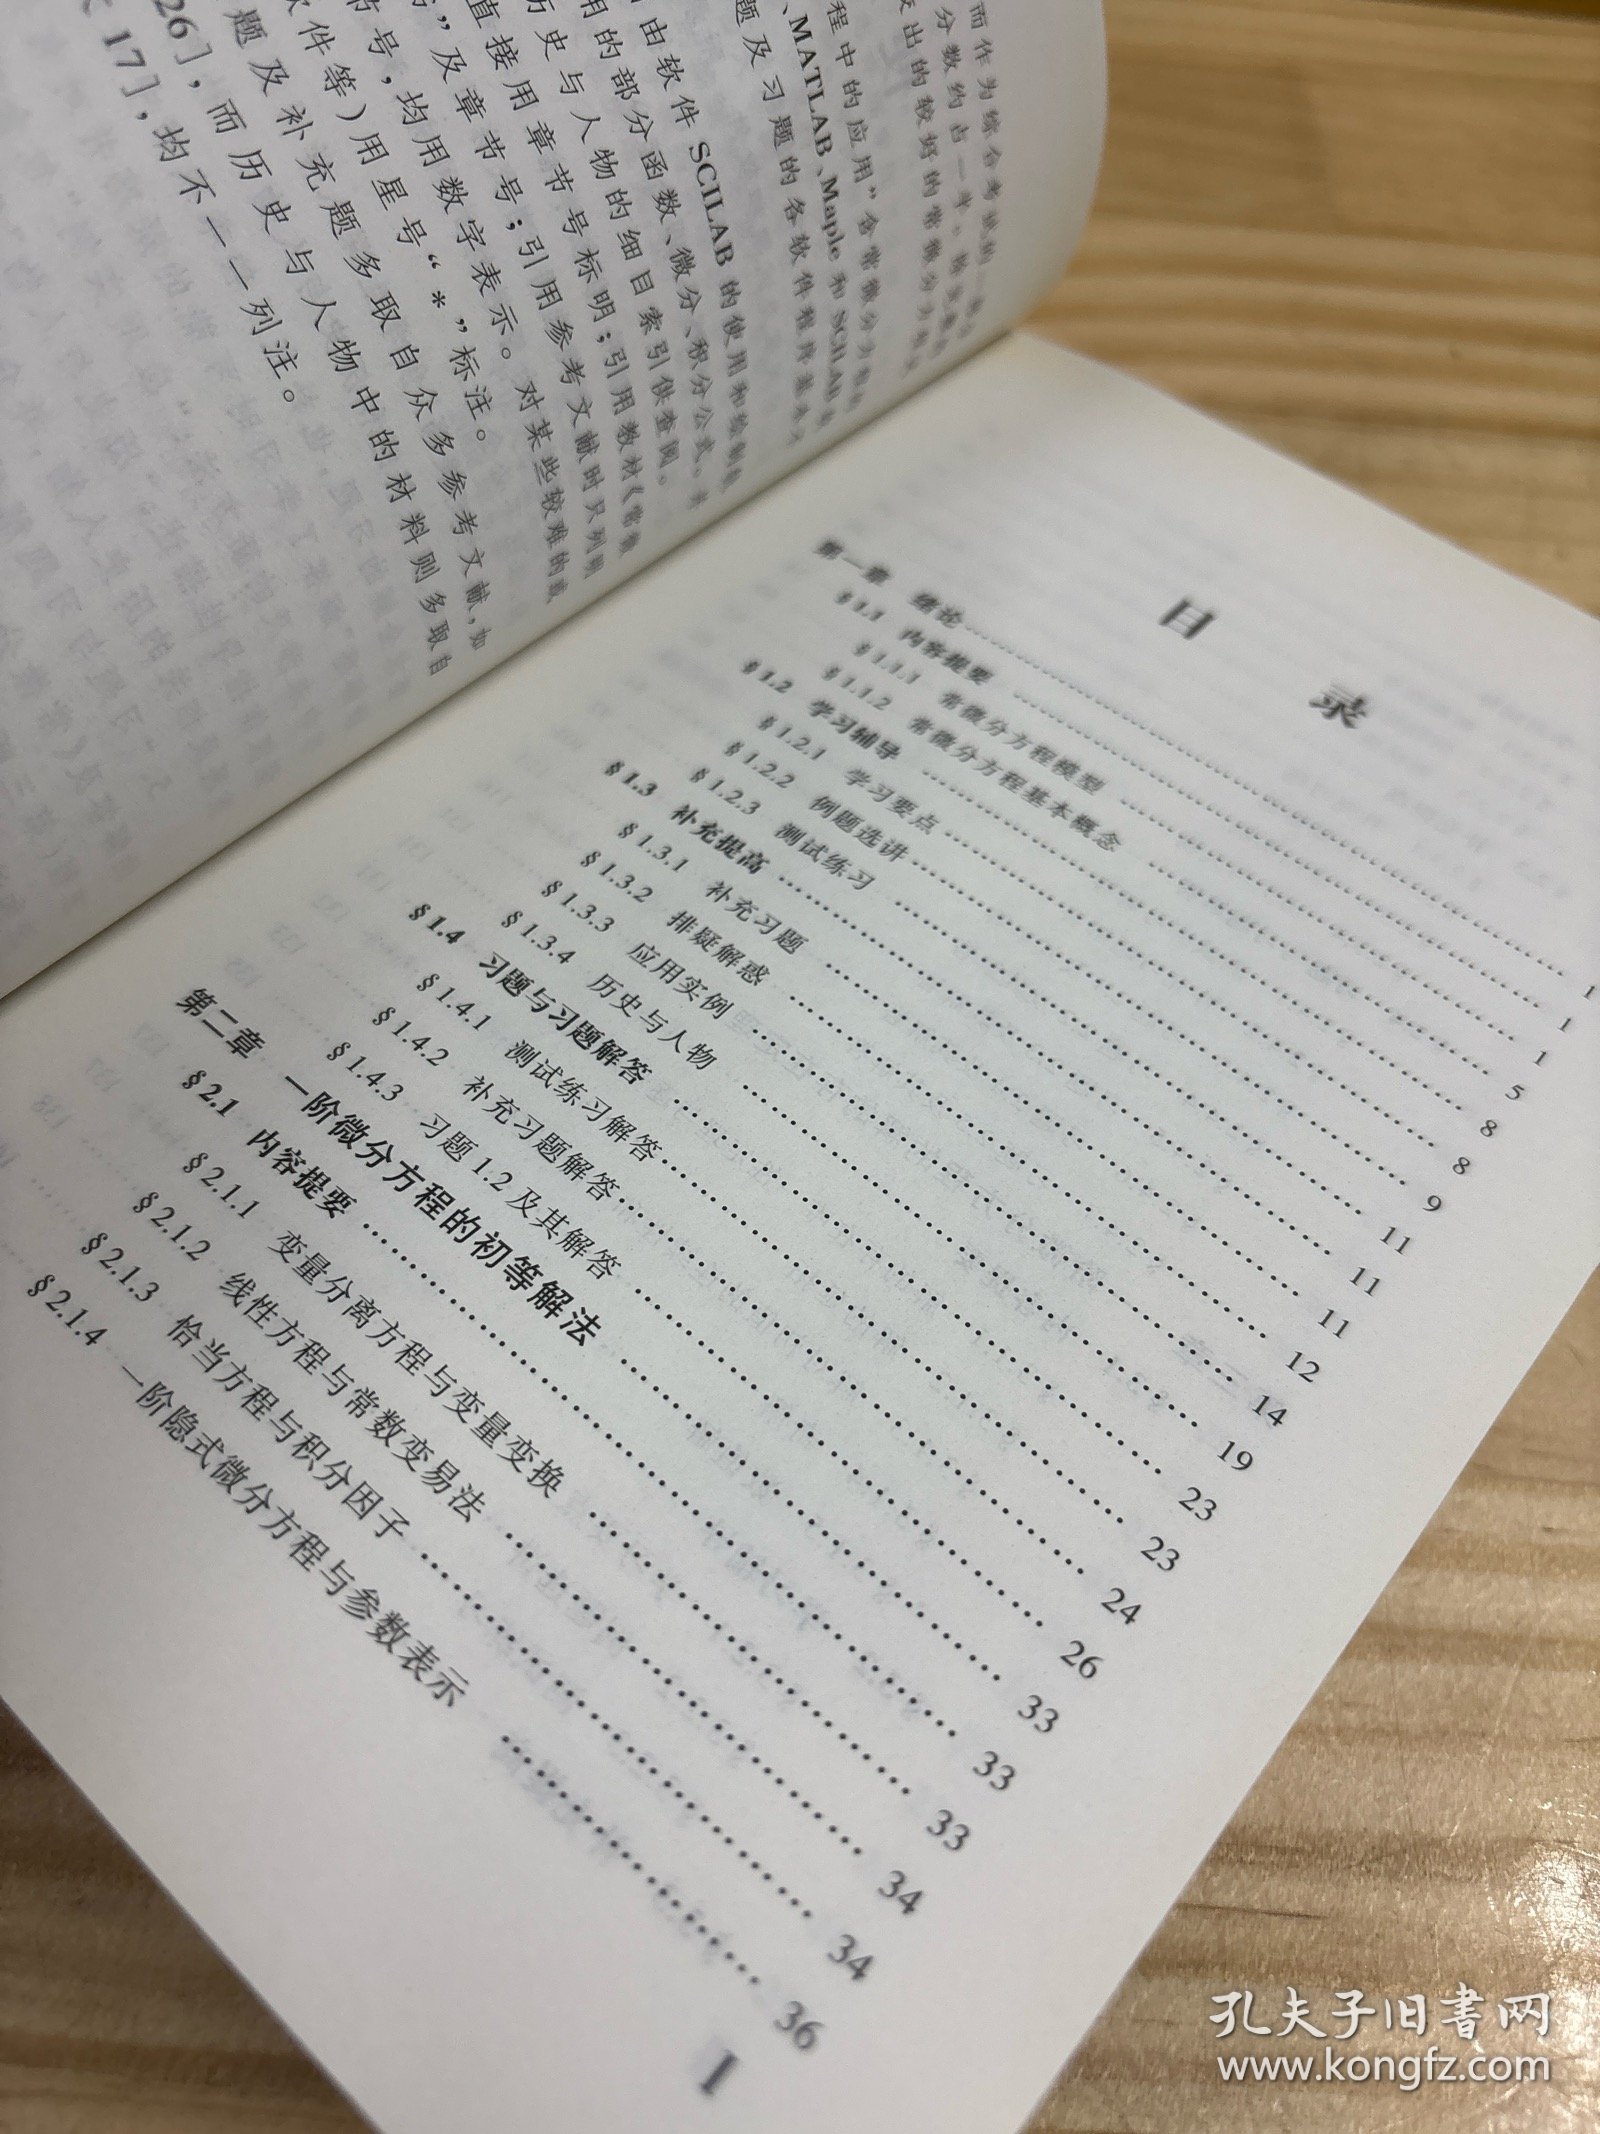 而作为综合考试的一部分
分数约占一半。
出的较好的常微分方程
程中的应用”含常微分方程
、MATLAB、Maple 和 SCILAB
题及习题的各软件程序
由软件 SCILAB 的使用和绘制
用的部分函数、微分、积分公式。
历史与人物的细目索引供查阅。
直接用章节号标明；引用教材《常微
”及章节号；引用参考文献时只列明
节号，均用数字表示。对某些较难的
软件等）用星号“*”标注。
题及补充题多取自众多参考文献，如
26]，而历史与人物中的材料则多取自
17]，均不一一列注。
目 录
第一章 绪论 1
§1.1 内容提要 1
§1.1.1 常微分方程模型 1
§1.1.2 常微分方程基本概念 5
§1.2 学习辅导 8
§1.2.1 学习要点 8
§1.2.2 例题选讲 9
§1.2.3 测试练习 11
§1.3 补充提高 11
§1.3.1 补充习题 11
§1.3.2 排疑解惑 12
§1.3.3 应用实例 14
§1.3.4 历史与人物 19
§1.4 习题与习题解答 23
§1.4.1 测试练习解答 23
§1.4.2 补充习题解答 24
§1.4.3 习题 1.2 及其解答 26
第二章 一阶微分方程的初等解法 33
§2.1 内容提要 33
§2.1.1 变量分离方程与变量变换 33
§2.1.2 线性方程与常数变易法 34
§2.1.3 恰当方程与积分因子 34
§2.1.4 一阶隐式微分方程与参数表示 36
1
孔夫子旧书网
www.kongfz.com